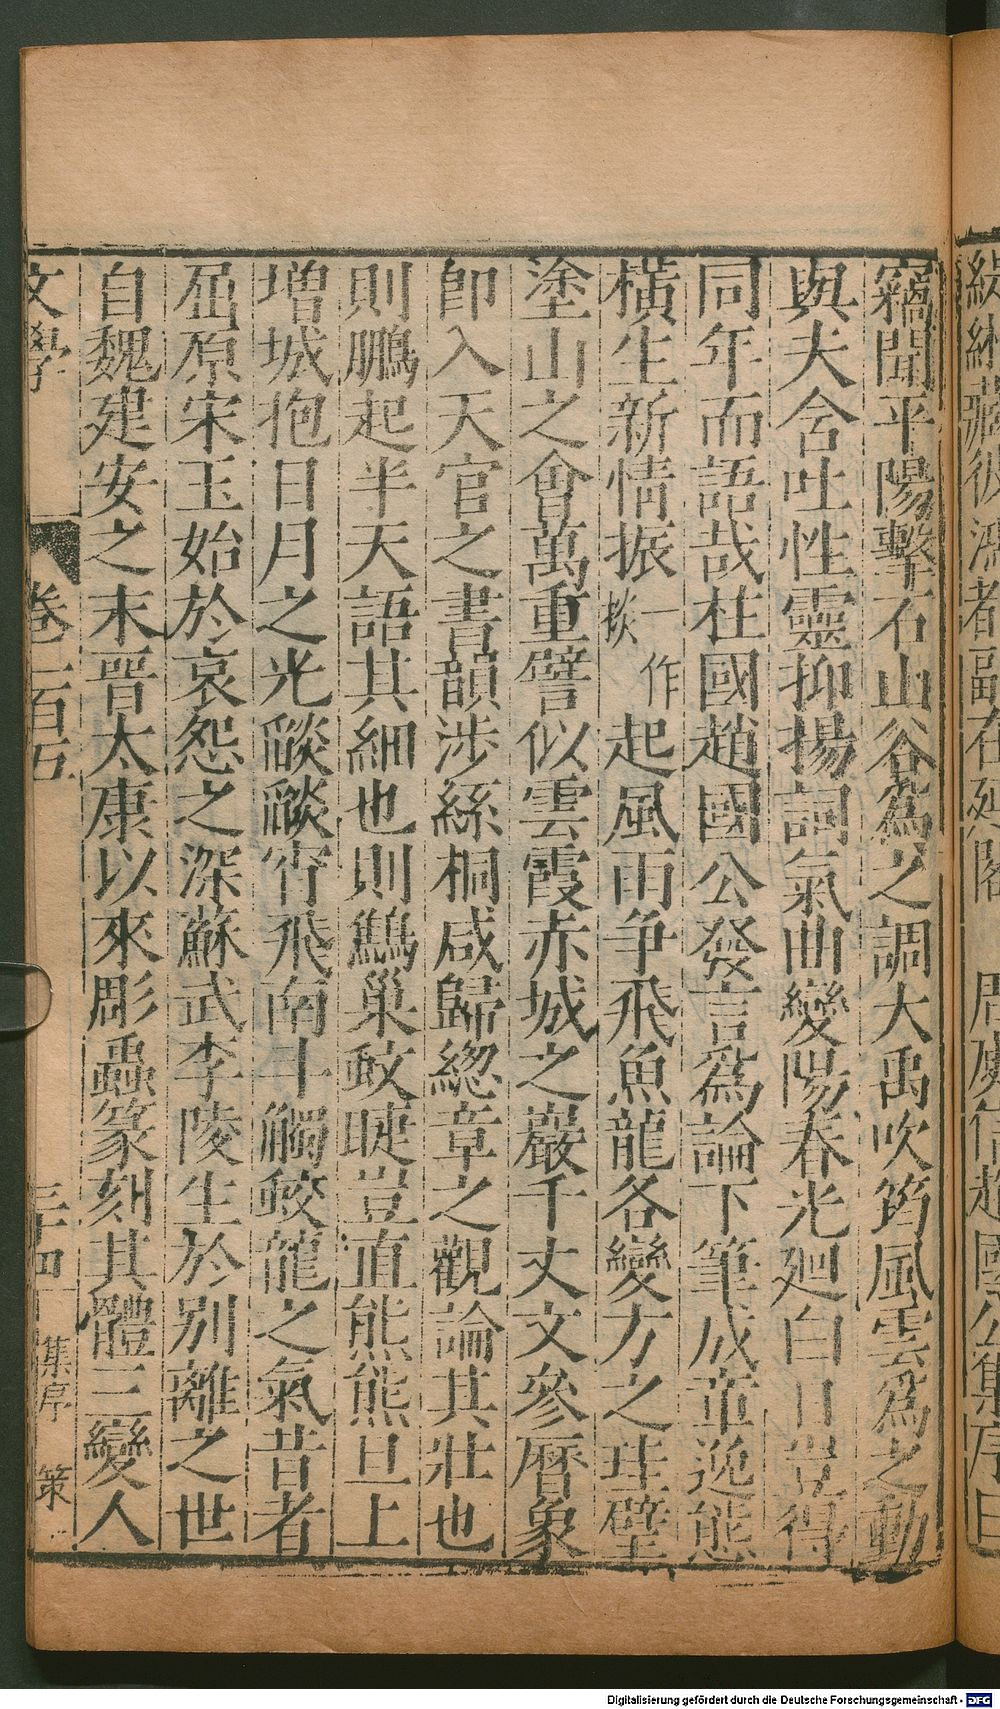 竊聞平陽擊石山谷為之調大禹吹筠風雲為之動
與夫含吐性靈抑揚詞氣曲變陽春光廻白日豈得
同年而語哉柱國趙國公發言為論下筆成章逸態
橫生新情振一作掞起風雨争飛魚龍各變方之珪璧
塗山之會萬重譬似雲霞赤城之巖千丈文參曆象
即入天官之書韻涉絲桐咸歸總章之觀論其壯也
則鵬起半天語其細也則鷦巢蚊睫豈直熊熊旦上
增城抱日月之光燄燄宵飛南斗觸蛟龍之氣昔者
屈原宋玉始於哀怨之深蘇武李陵生於別離之世
自魏建安之末晉太康以來彫蟲篆刻其體三變人
文學 卷一百五 三十四 集序 策
Digitalisierung gefördert durch die Deutsche Forschungsgemeinschaft - DFG